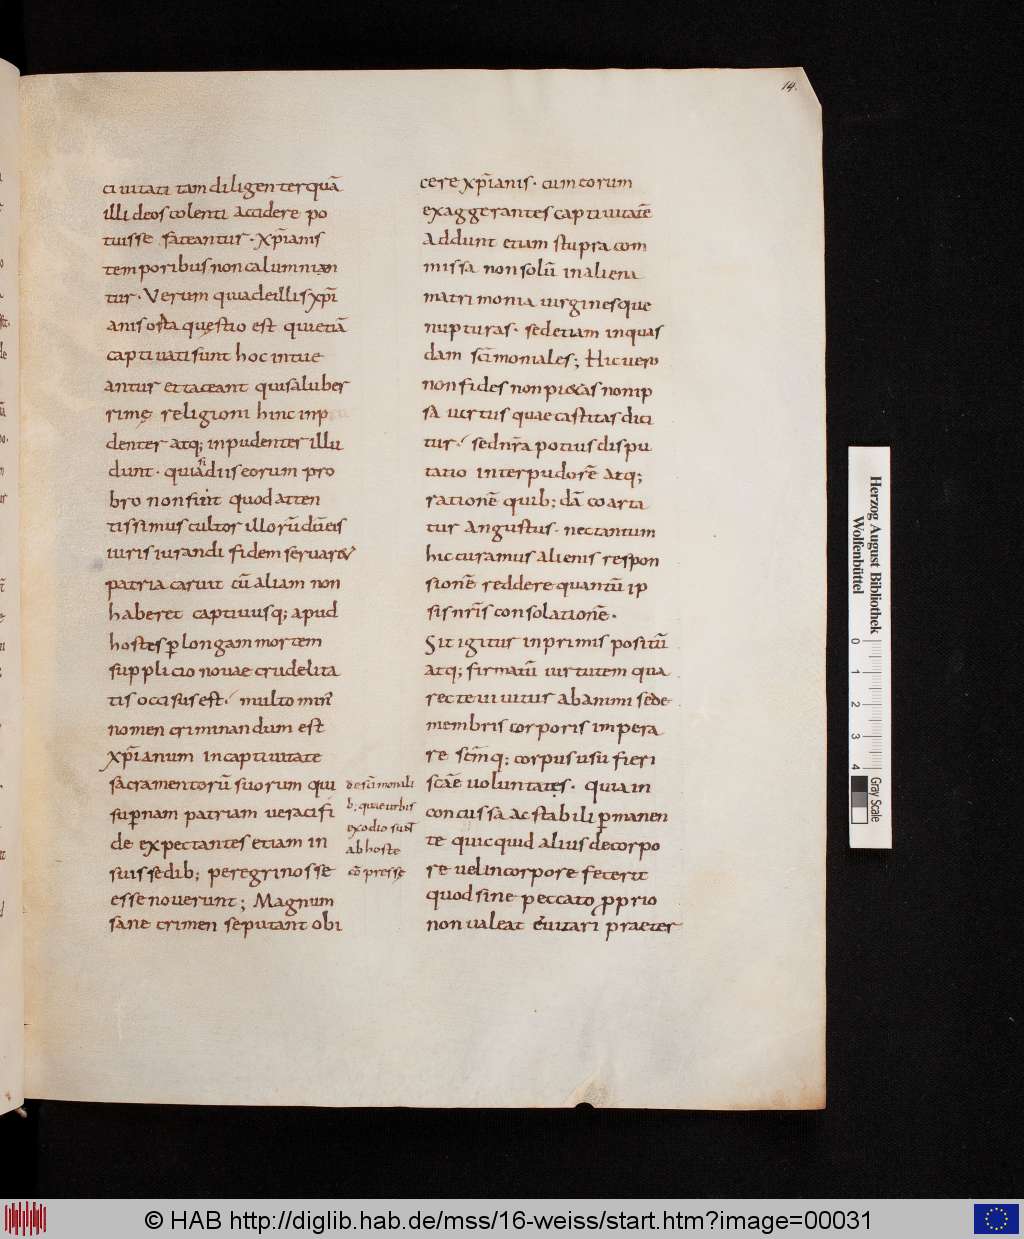 14.
ciuitati tam diligenter quā
illi deos colenti accidere po
tuisse fateantur· xp̄ianis
temporibus non calumnian
tur· Verum quia de illis xp̄i
anis orta quęstio est qui etiā
captiuati sunt hoc intue
antur et taceant qui saluber
rimę religioni hinc inp
denter atq; inpudenter illu
dunt· quia si diis eorum pro
bro non fuit quod atten
tissimus cultor illorū dū eis
iuris iurandi fidem seruar&
patria caruit cū aliam non
haberet captiuusq; apud
hostes ꝑ longam mortem
supplicio nouae crudelita
tis occisus est· multo min᷒
nomen criminandum est
xp̄ianum in captiuitate
sacramentorū suorum qui
suꝑnam patriam ueraci fi
de expectantes etiam in
suis sedib; peregrinos se
esse nouerunt; Magnum
sane crimen se putant obi
de sc̄imoniali
b; quae urbis
exodio sunt
ab hoste
cō presse
cere xp̄ianis· cum eorum
exaggerantes captiuitatē
Addunt etiam stupra com
missa non solū in aliena
matrimonia uirginesque
nupturas· sed etiam in quas
dam sc̄imoniales; Hic uero
non fides non pi&as non ip
sa uirtus quae castitas dici
tur· sed nr̄a potius dispu
tatio inter pudorē atq;
rationē quib;dā coarta
tur angustus· nec tantum
hic curamus alienis respon
sionē reddere quantū ip
sis nr̄is consolationē·
Sit igitur in primis positū
atq; firmatū uirtutem qua
recte uiuitur ab animi sede
membris corporis impera
re sc̄mq; corpus usū fieri
sc̄ae uoluntatęs· qua in
concussa ac stabili ꝑmanen
te quicquid alius de corpo
re uel in corpore fecerit
quod sine peccato ꝓprio
non ualeat euitari praeter
Herzog August Bibliothek
Wolfenbüttel
0 1 2 3 4
Gray Scale
© HAB http://diglib.hab.de/mss/16-weiss/start.htm?image=00031